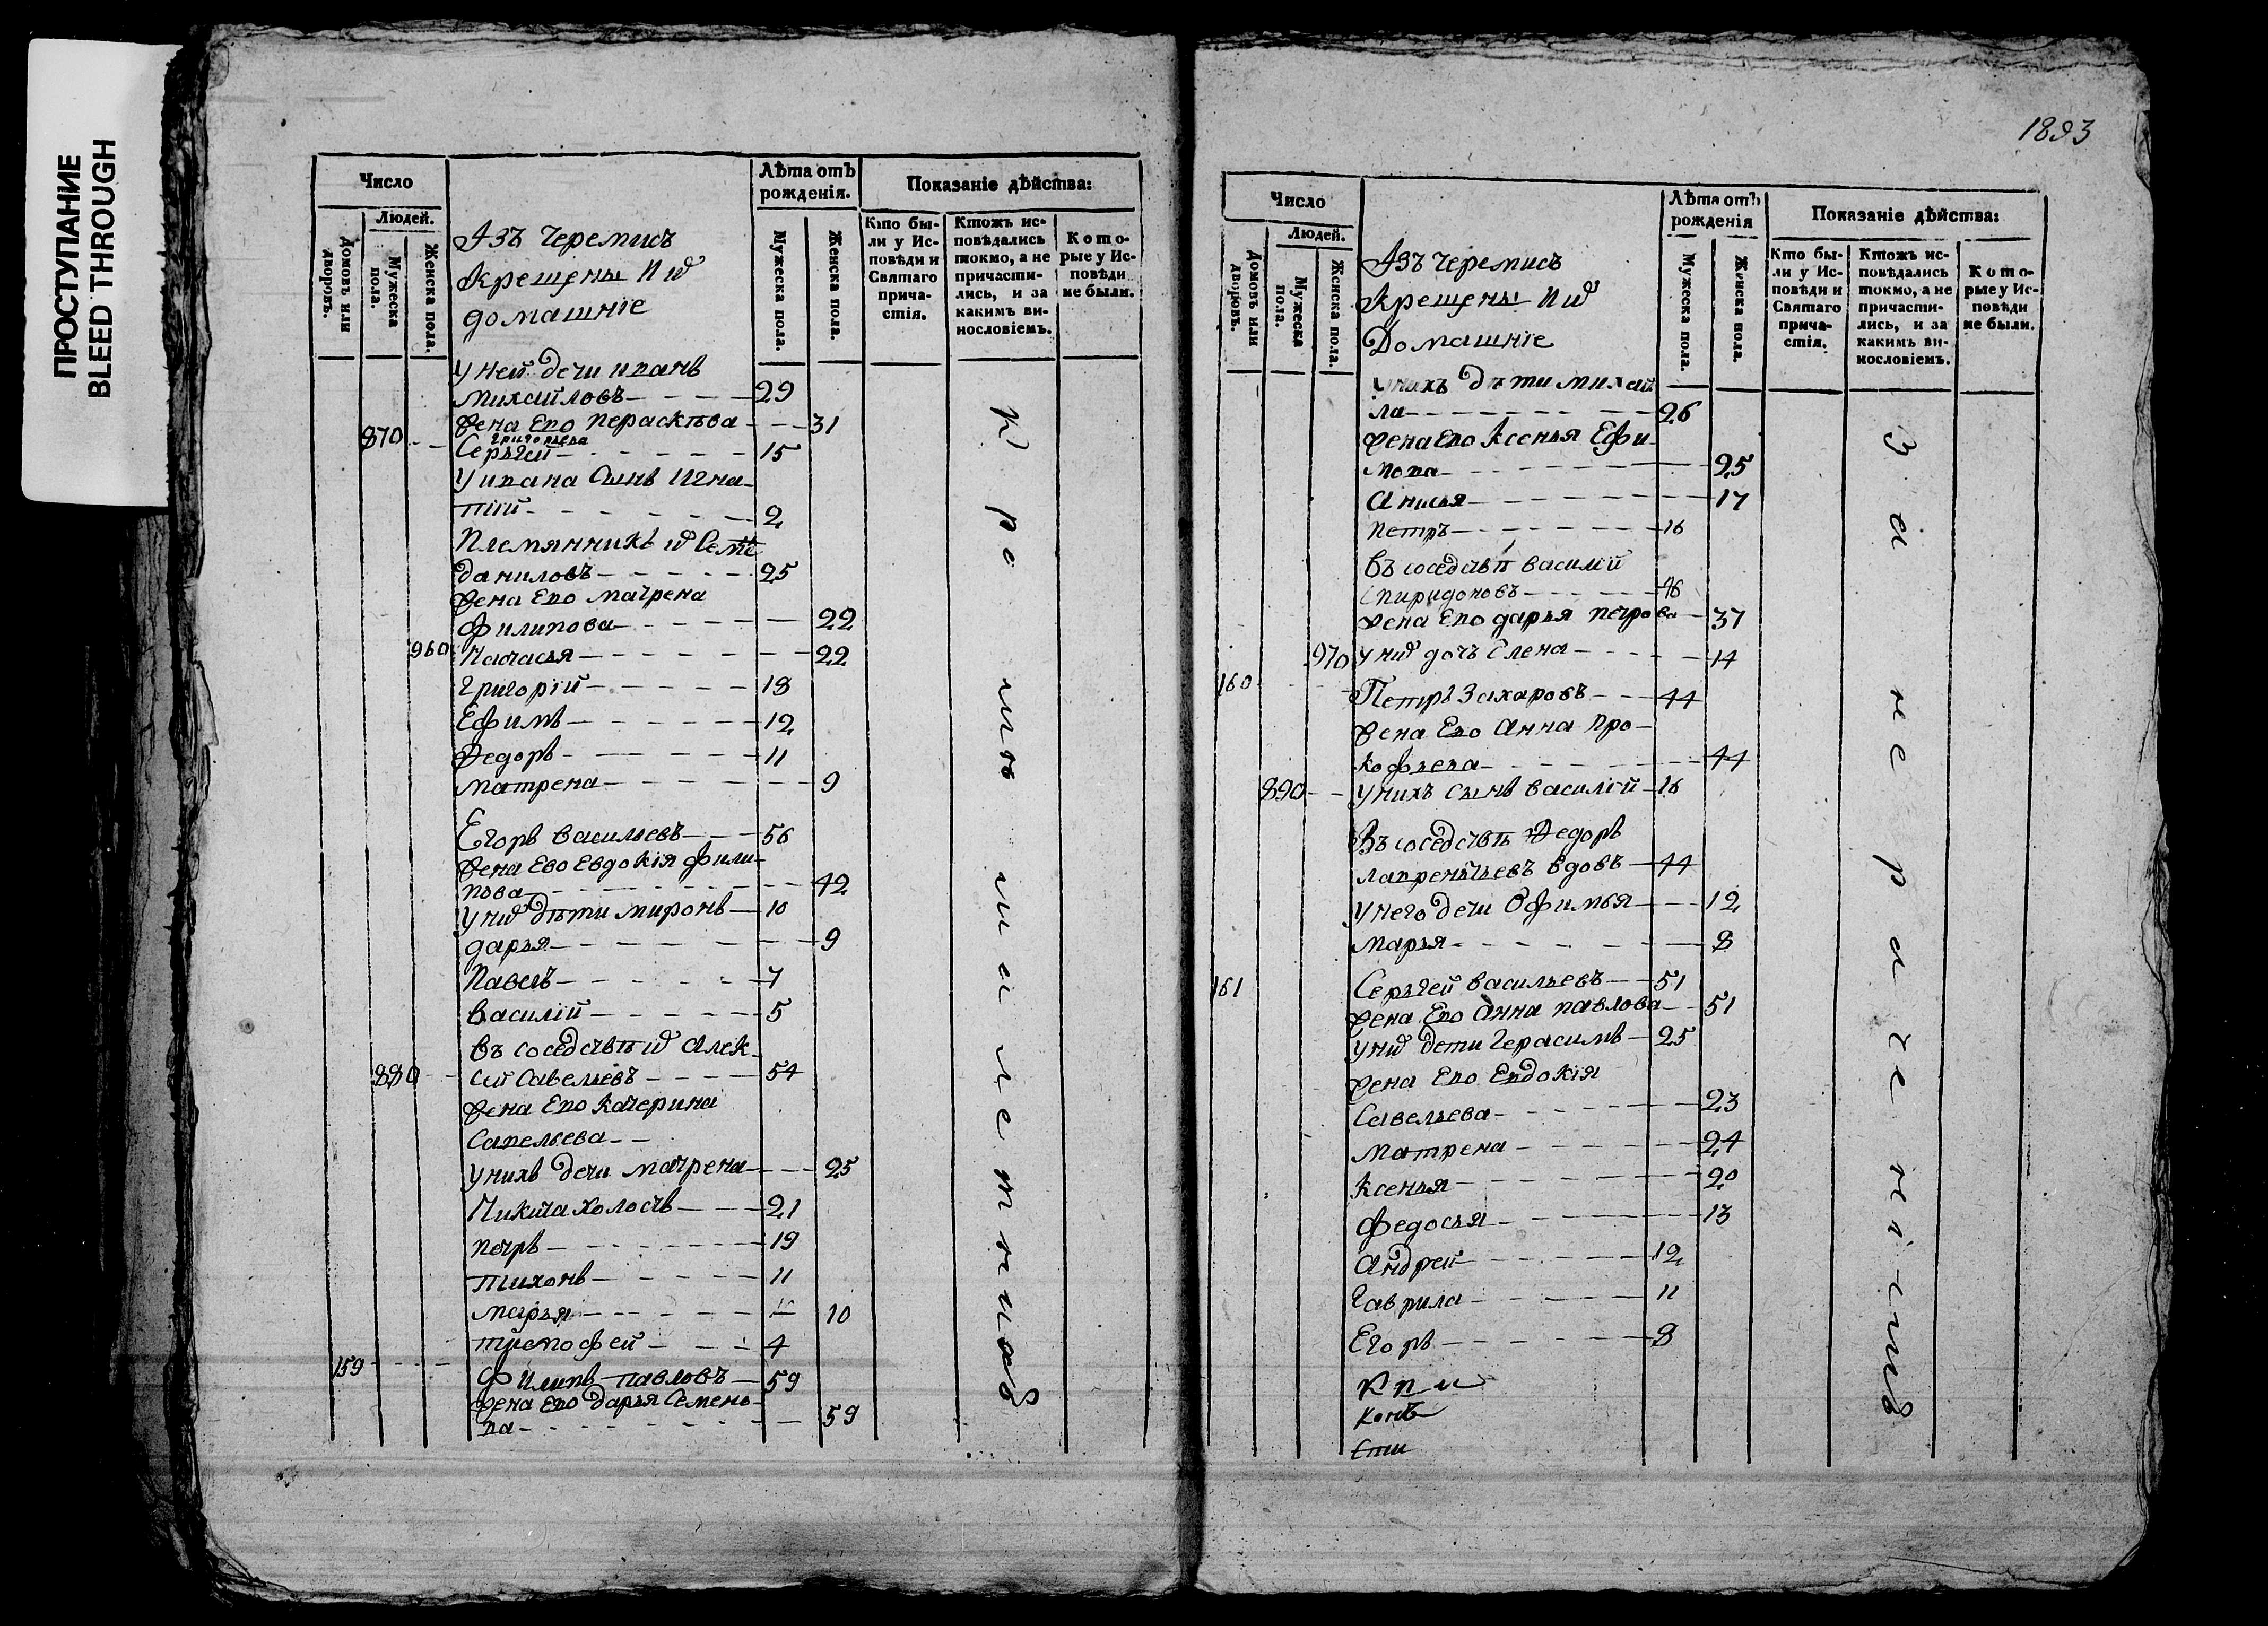 ПРОСТУПАНИЕ
BLEED THROUGH
Число
Людей.
Домовъ или дворовъ.
Мужеска пола.
Женска пола.
Изъ черемисъ
крещены и ихъ
домашніе
Лѣта отъ рожденія.
Мужеска пола.
Женска пола.
Показаніе дѣйства:
Кто были у Исповѣди и Святаго причастія.
Ктожъ исповѣдались токмо, а не причастились, и за какимъ винословіемъ.
Которые у Исповѣди не были.
У ней дети иванъ
михайловъ 29
жена Ево параскѣва 31
григорьева
870 Сергѣй 15
У ивана Сынъ Игна-
тій 2
Племянникъ их
даниловъ 25
жена Ево матрена
филипова 22
960 Настасья 22
григорій 18
Ефимъ 12
Федоръ 11
матрена 9
Егоръ васильевъ 56
жена Ево Евдокія фили-
пова 42
У них дѣти миронъ 10
дарья 9
Павелъ 7
василій 5
въ соседствѣ их алек-
880 сей савельевъ 54
жена Ево катерина
Савельева
У нихъ дети матрена 25
Никита холостъ 21
петръ 19
тихонъ 11
марья 10
тимофей 4
159 Филипъ павловъ 59
жена Ево дарья Семено-
ва 59
Кромѣ малолетниов
1893
Число
Людей.
Домовъ или дворовъ.
Мужеска пола.
Женска пола.
Изъ черемисъ
крещены и ихъ
Домашніе
Лѣта отъ рожденія
Мужеска пола.
Женска пола.
Показаніе дѣйства:
Кто были у Исповѣди и Святаго причастія.
Ктожъ исповѣдались токмо, а не причастились, и за какимъ винословіемъ.
Которые у Исповѣди не были.
У нихъ дѣти михай
ла 26
жена Ево ксенья Ефи-
мова 25
анисья 17
петръ 16
въ соседствѣ василій
спиридоновъ 46
жена Ево дарья петрова 37
970 у них дочь Елена 14
160 Петръ Захаровъ 44
жена Ево анна про-
кофьева 44
890 У нихъ сынъ василій 16
Въ соседствѣ Федоръ
лаврентьевъ вдовъ 44
У него дети Офимья 12
марья 8
161 Сергѣй васильевъ 51
жена Ево анна павлова 51
У них дети герасимъ 25
жена Ево Евдокія
Савельева 23
матрена 24
ксенья 20
федосья 13
андрей 12
гаврила 11
Егоръ 8
За нерачениемъ